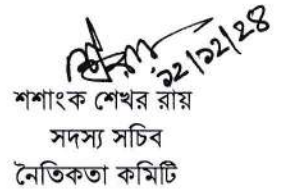 ১২/১২/২৪
শশাংক শেখর রায়
সদস্য সচিব
নৈতিকতা কমিটি